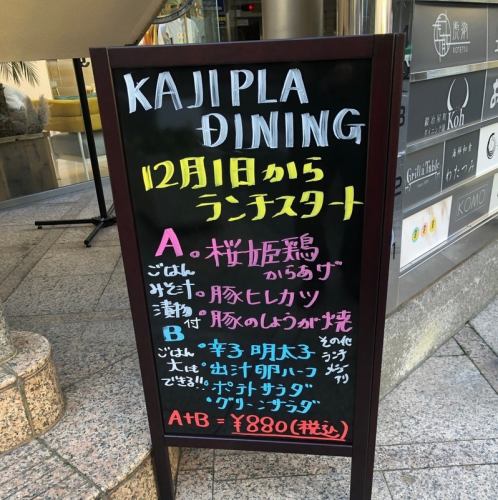 KAJIPLA
DINING
12月1日から
ランチスタート
A
ごはん
みそ汁
漬物付
・桜姫鶏
からあげ
・豚ヒレカツ
・豚のしょうが焼
B
ごはん
大は
できる!!
・辛子明太子
・出汁卵ハーフ
・ポテトサラダ
・グリーンサラダ
その他
ランチ
メニュー
アリ
A+B=¥880(税込)
Koh
Grill & Table
わたつみ
KOMO